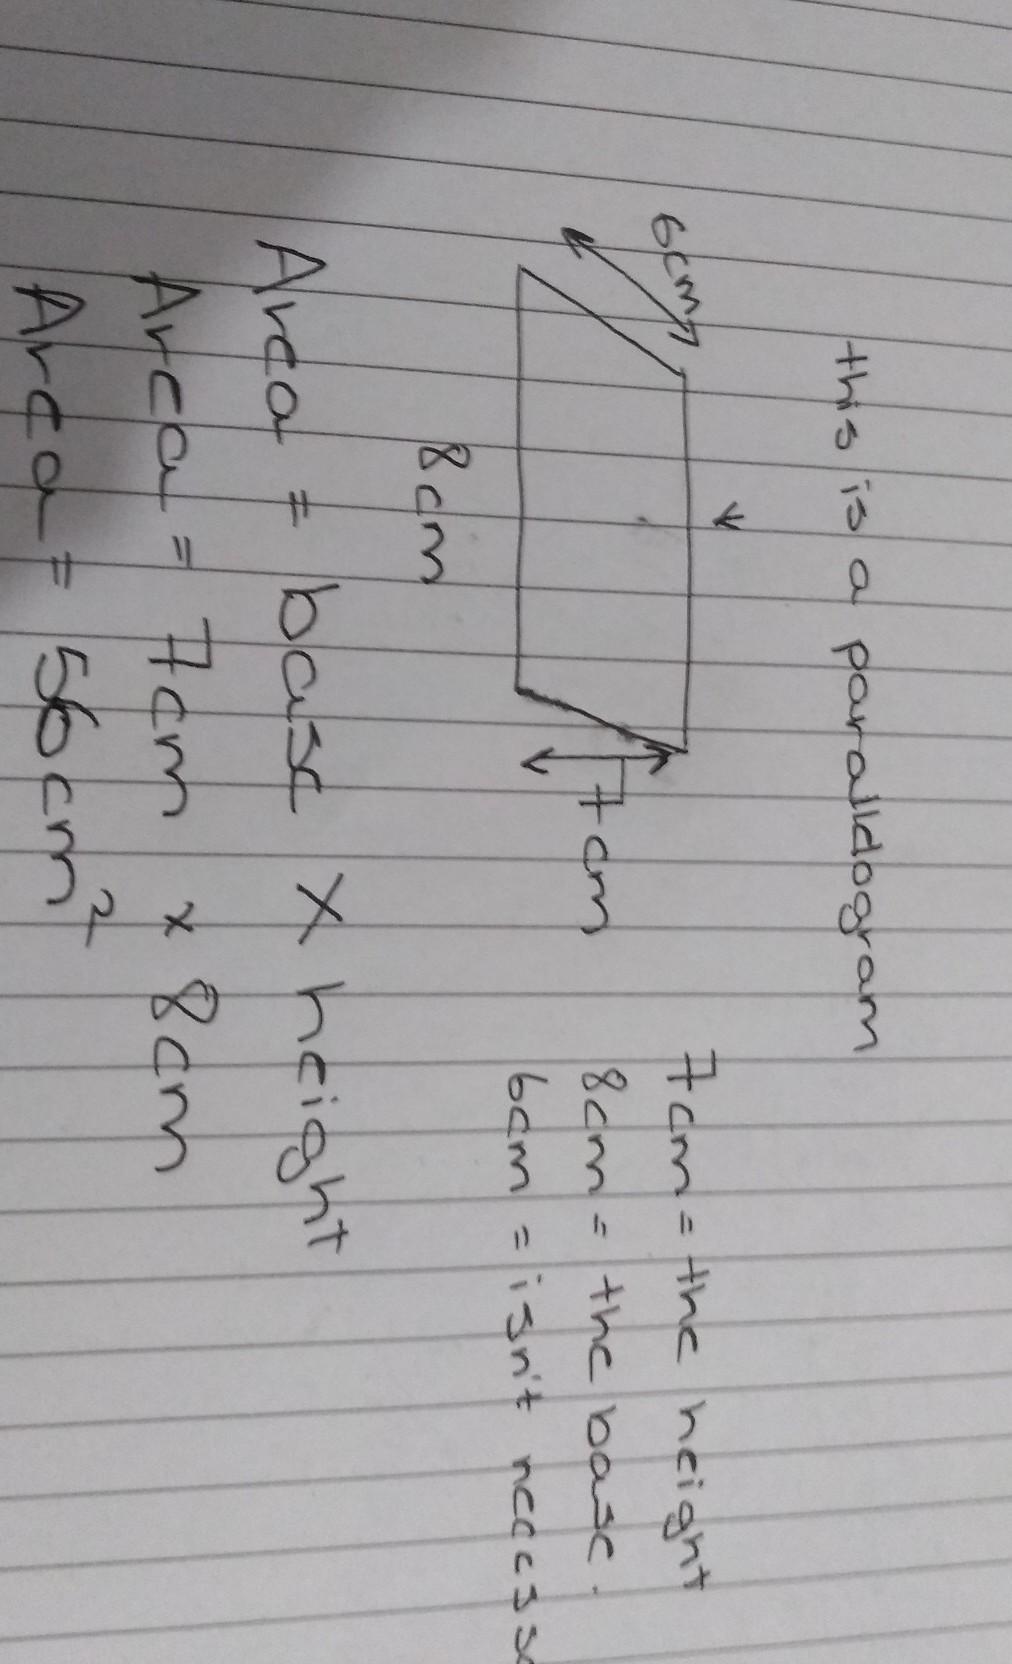 this is a paralldogram
6cm
7cm
8cm
7cm = the height
8cm = the base.
6cm = isn't
Area = base x height
Area = 7cm x 8cm
Area = 56cm²